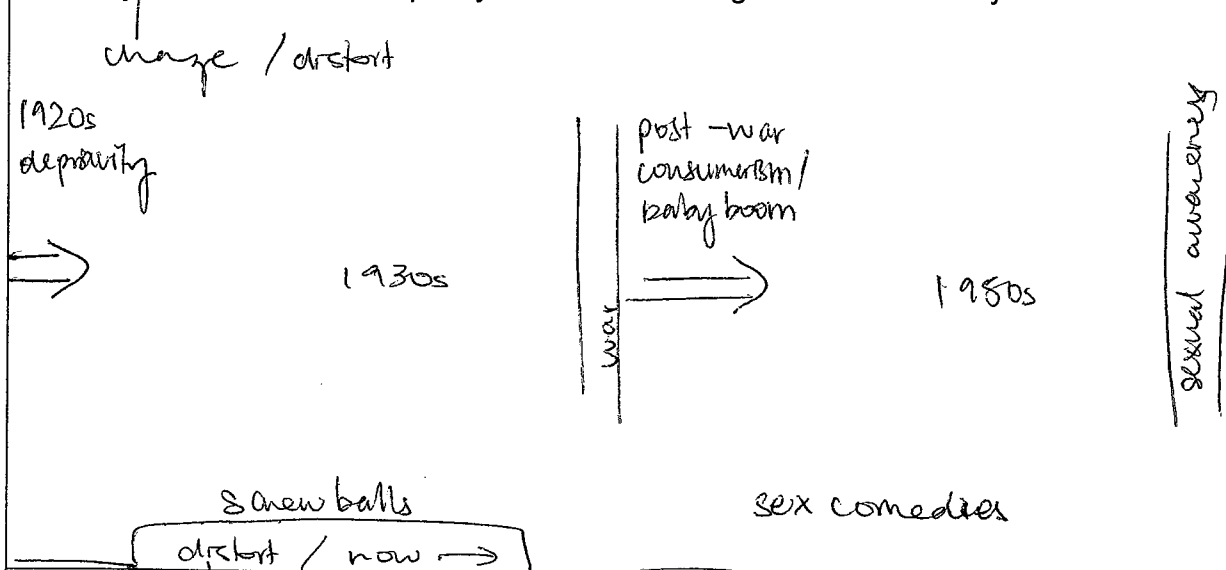 change / distort
1920s
depravity
1930s
war
post-war
consumerism/
baby boom
1950s
sexual awareness
screwballs
sex comedies
distort / now →